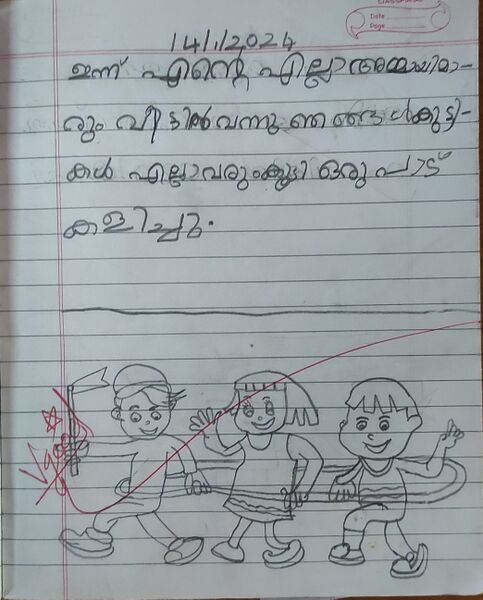 CLASSMATE
Date
Page
14/1/2024
ഇന്ന് എന്റെ എല്ലാ അമ്മായിമാ-
രും വീട്ടിൽ വന്നു ഞങ്ങൾ കുട്ടി-
കൾ എല്ലാവരും കൂടി ഒരു പാട്
കളിച്ചു.